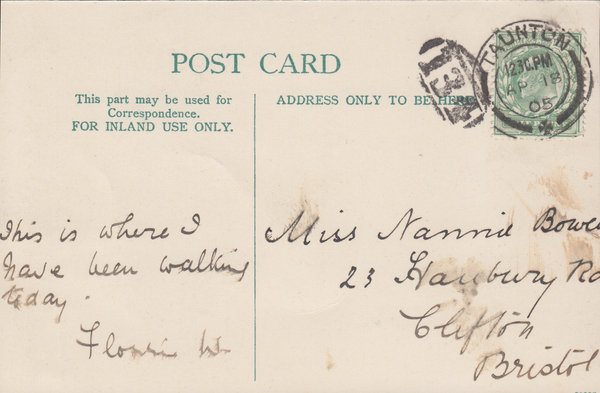 POST CARD
This part may be used for
Correspondence.
FOR INLAND USE ONLY.
ADDRESS ONLY TO BE HERE
TAUNTON
12 30 PM
AP 18
05
This is where I
have been walking
today.
Miss Nannie Bowe
23 Hanbury Rd
Clifton
Bristol